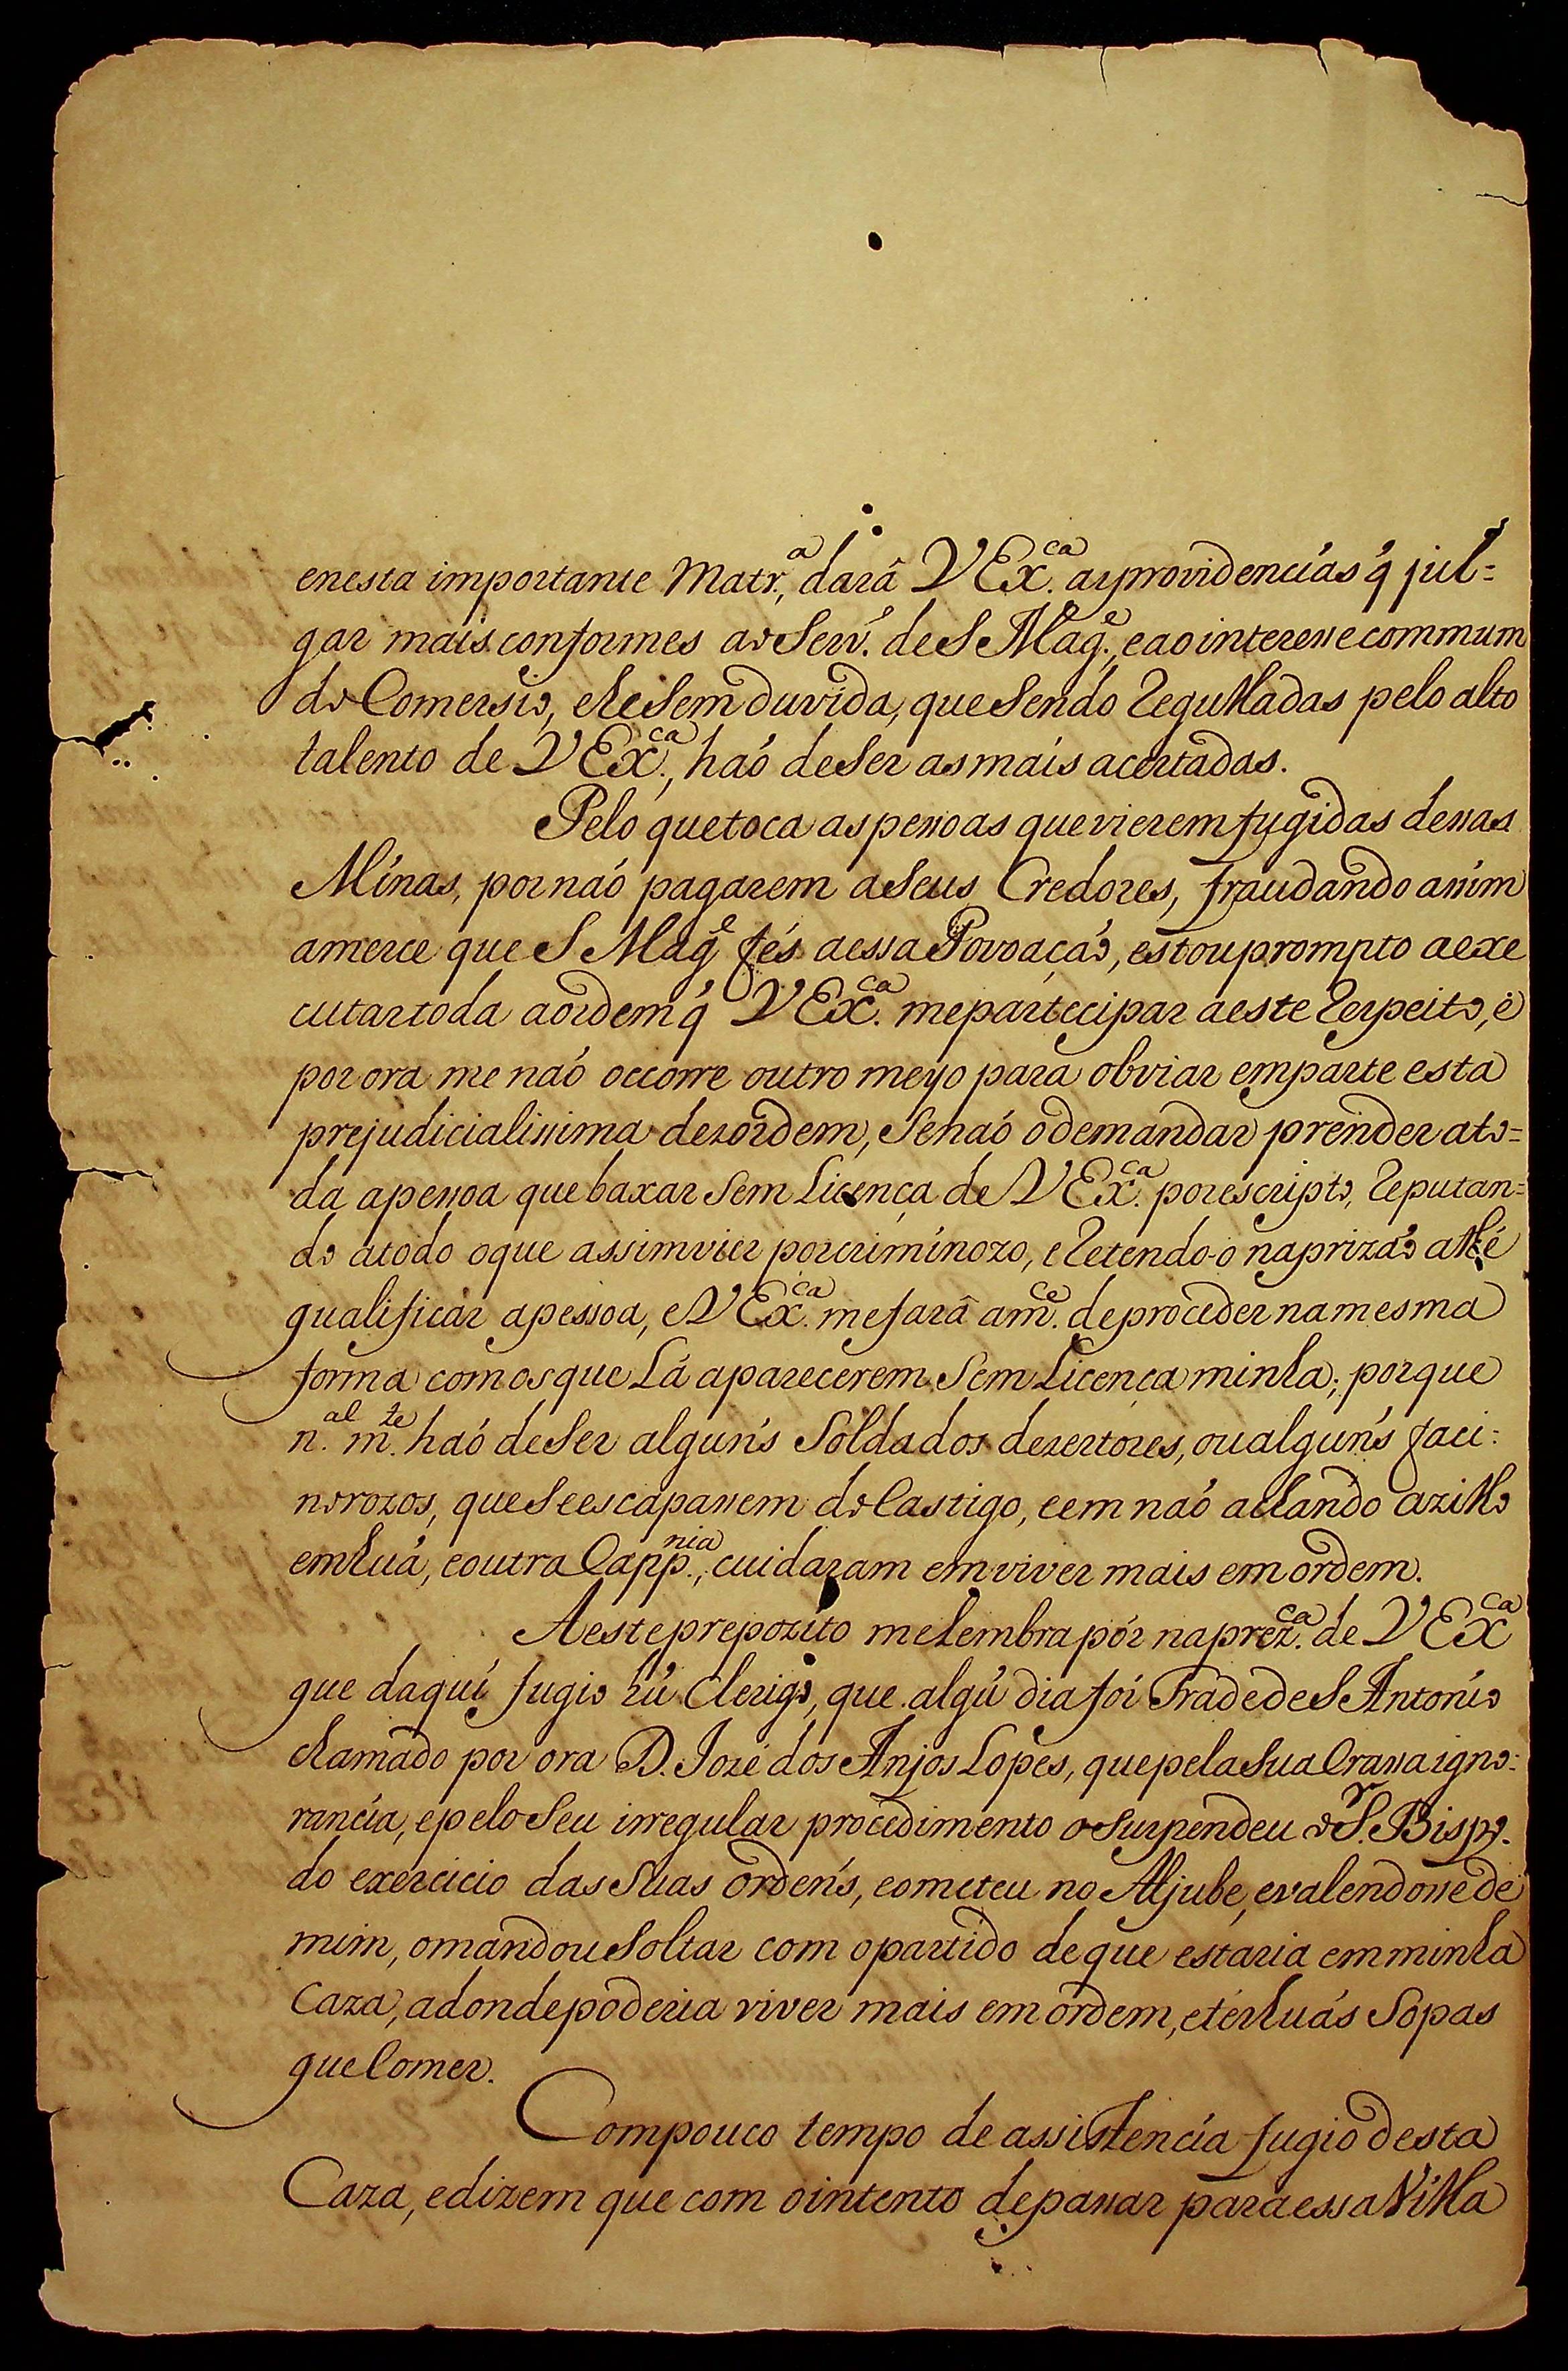 enesta importante Matr.ª, dará VEx.ca as providencias q̃ jul=
gar mais conformes ao Serv.º de S Mag.e, e ao interesse commum
do Comersio, e he Sem duvida, que Sendo Regulladas pelo alto
talento de VEx.ca, haó de Ser as mais acertadas.
Pelo que toca as pessoas que vierem fugidas dessas
Minas, por naó pagarem a Seus Credores, fraudando assim
a merce que S Mag.e fés a essa Povoaçaó, estou prompto a exe
cutar toda a ordem q̃ VEx.ca me partecipar a este Respeito, e
por ora me naó occorre outro meyo para obviar em parte esta
prejudicialissima dezordem, Senaó o de mandar prender a to=
da a pessoa que baxar Sem Licença de VEx.ca por escripto, Reputan=
do a todo o que assim vier por criminozo, e Retendo-o na prizaó athé
qualificar a pessoa, e VEx.ca me fará a m.ce de proceder na mesma
forma com os que Lá aparecerem Sem Licença minha; porque
n.al m.te haó de Ser alguńs Soldados dezertores, ou alguńs faci=
norozos, que Se escapassem do Castigo, e em naó achando azillo
em huá, e outra Capp.nia, cuidaram em viver mais em ordem.
A este prepozito me lembra pór na prez.ca de VEx.ca
que daqui fugio hú Clerigo, que algú dia foi Frade de S Antonio
chamado por ora D. Jozé dos Anjos Lopes, que pela Sua Crassa igno=
rancia, e pelo Seu irregular procedimento o Suspendeu o S.r Bispo
do exercicio das Suas ordeńs, e o meteu no Aljube, e valendosse de
mim, o mandou Soltar com o partido de que estaria em minha
Caza, adonde poderia viver mais em ordem, e ter huás Sopas
que Comer.
Com pouco tempo de assistencia fugio desta
Caza, e dizem que com o intento de passar para essa Villa